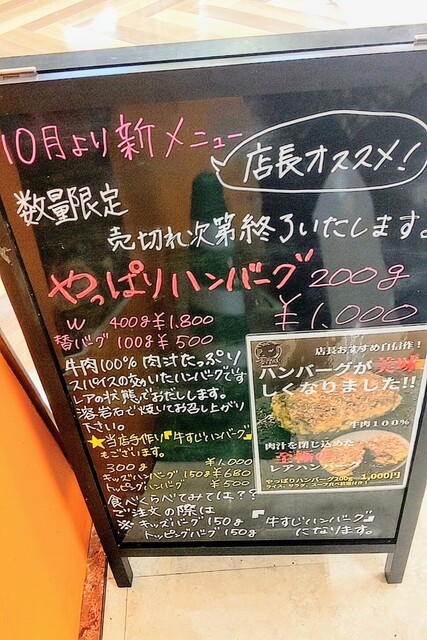 10月より新メニュー
店長オススメ!
数量限定
売切れ次第終了いたします。
やっぱりハンバーグ 200g
¥1,000
W 400g ¥1.800
替バーグ 100g ¥500
牛肉100% 肉汁たっぷり
スパイスの効いたハンバーグです
レアの状態でおだしします。
溶岩石で焼いてお召し上がり
下さい。
★当店手作り『牛すじハンバーグ』
もございます。
300g ¥1.000
キッズハンバーグ 150g ¥680
トッピングハンバーグ ¥500
食べくらべてみては??
ご注文の際は
※キッズバーグ 150g 『牛すじハンバーグ』
トッピングバーグ 150g になります。
店長おすすめ自信作!
ハンバーグが美味
しくなりました!!
牛肉100%
肉汁を閉じ込めた
至極の
レアハン
やっぱりハンバーグ200g 1,000円